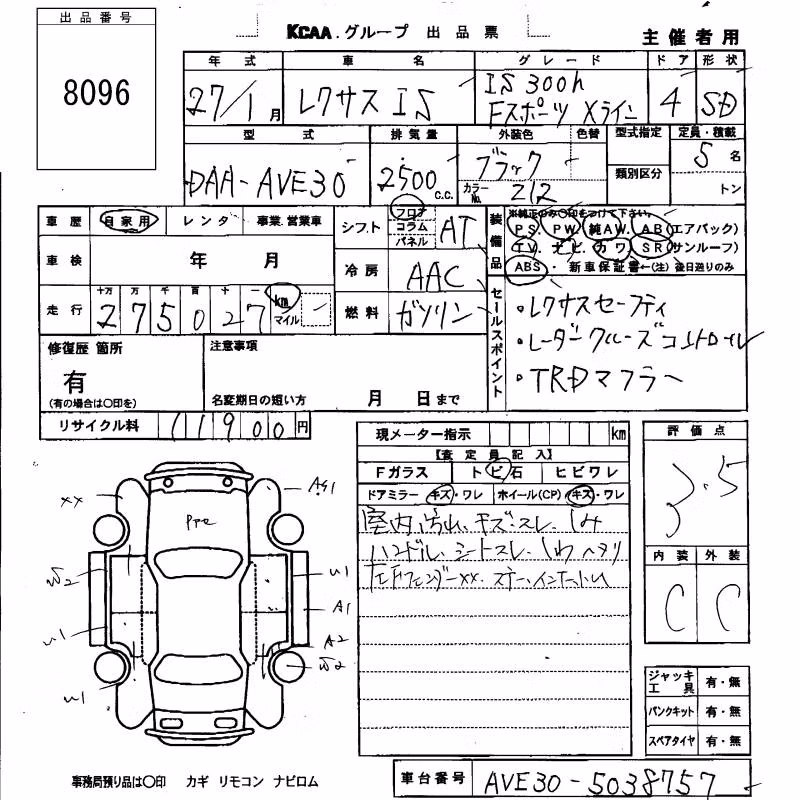 出品番号
8096
KCAA.グループ 出品票
主催者用
年式 車名 グレード ドア 形状
27/1月 レクサス IS IS300h Fスポーツ Xライン 4 SD
型式 排気量 外装色 色替 型式指定 定員・積載
DAA-AVE30 2500 C.C. ブラック カラーNo. 212 類別区分 5名
トン
車歴 自家用 レンタ 事業.営業車
シフト フロア コラム パネル AT
装備品 ※純正のみ○印をつけて下さい。
PS. PW. 純AW. AB(エアバック)
TV. ナビ. カワ SR(サンルーフ)
ABS・新車保証書←(注)後日送りのみ
車検 年 月
冷房 AAC
走行 十万 万 千 百 十 一
275027 km マイル
燃料 ガソリン
セールスポイント
・レクサスセーフティ
・レーダークルーズコントロール
・TRDマフラー
修復歴 箇所
有
(有の場合は〇印を)
注意事項
名変期日の短い方 月 日まで
リサイクル料 11900円
現メーター指示 km
【査定員記入】
Fガラス トビ石 ヒビワレ
ドアミラー キズ・ワレ ホイール(CP) キズ・ワレ
室内汚れ.キズ.スレ.シミ
ハンドル.シートスレ.シワ ヘタリ
評価点
3.5
内装 外装
C C
XX
A81
PPC
W2
U1
U1
A1
U1
A2
W2
U1
ジャッキ 工具 有・無
パンクキット 有・無
スペアタイヤ 有・無
事務局預り品は〇印 カギ リモコン ナビロム
車台番号 AVE30-5038757